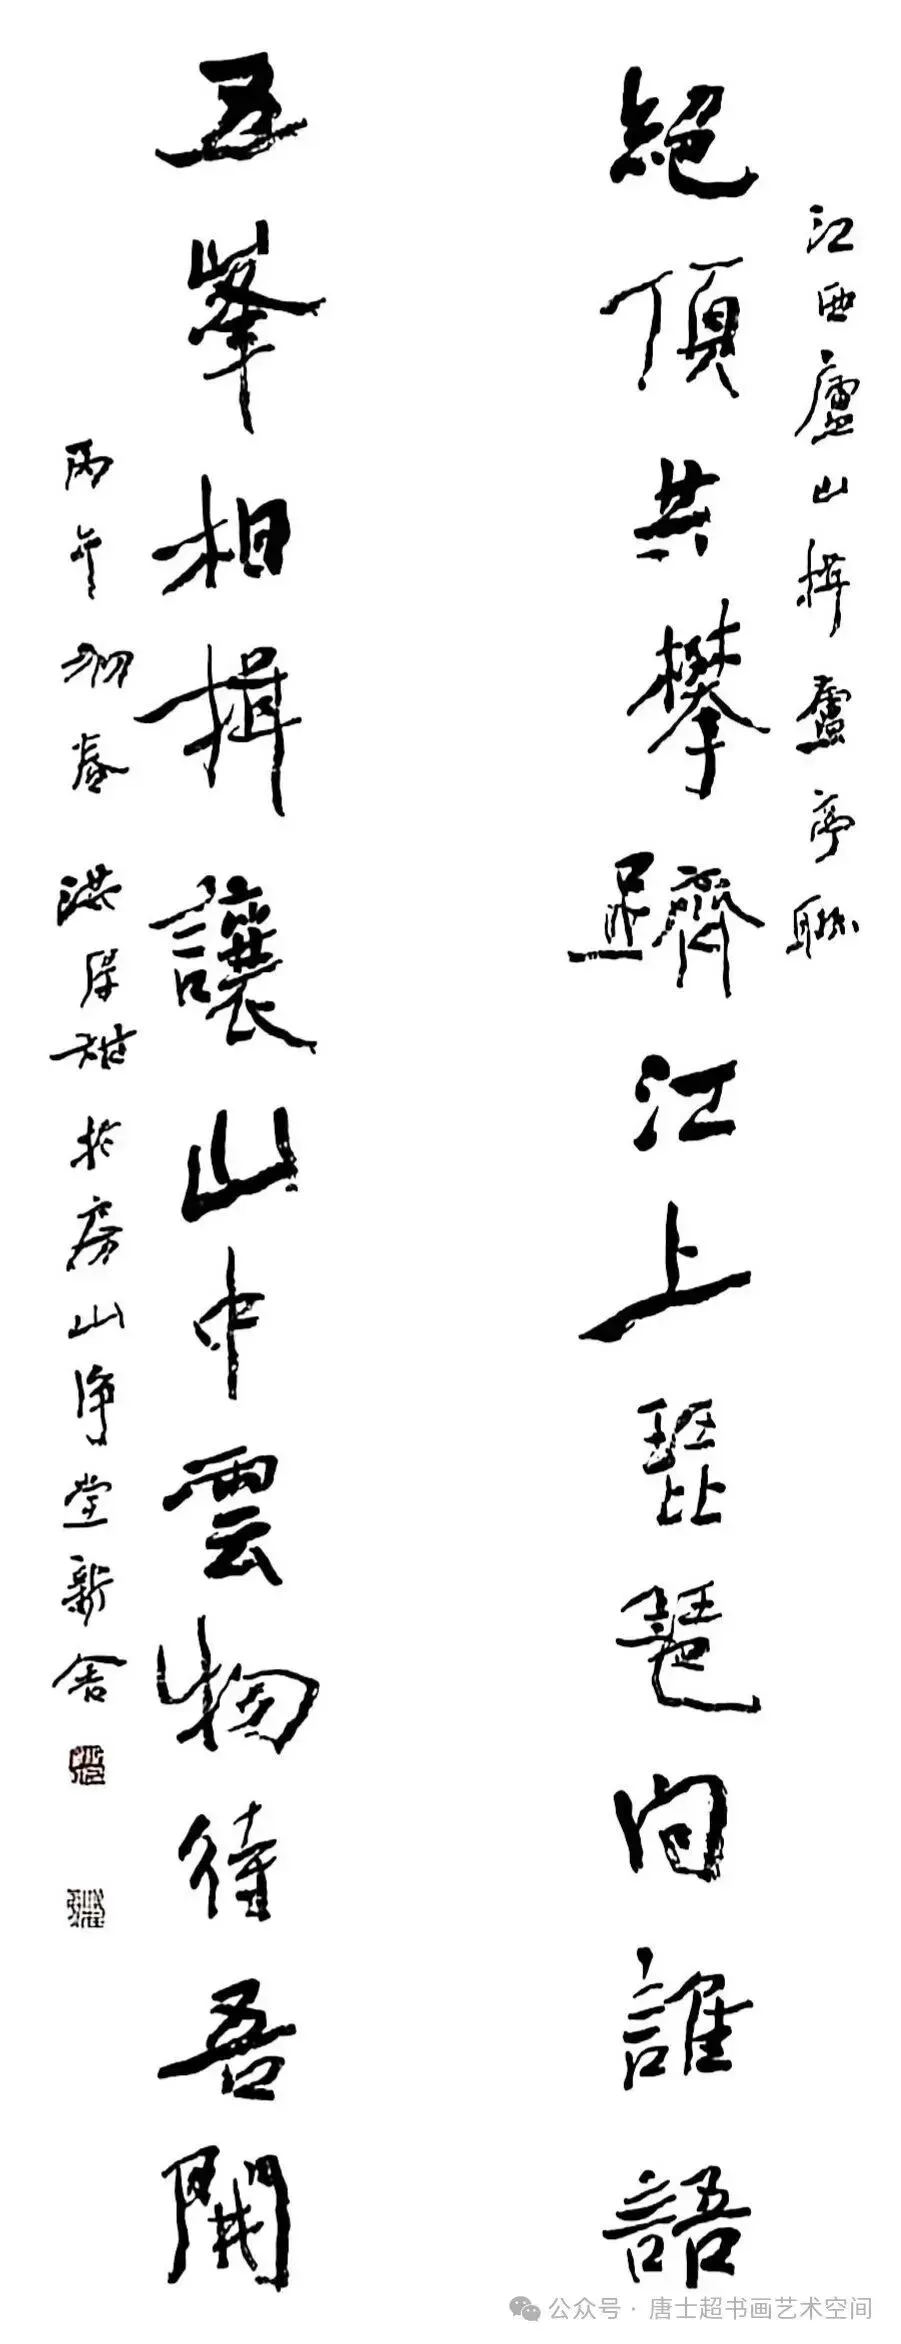 江西廬山揖廬亭聯
絕頂共攀躋江上琵琶问誰語
五峯相揖讓山中雲物待吾開
丙午初春洪厚甜於房山淨堂新舍
公众号·唐士超书画艺术空间